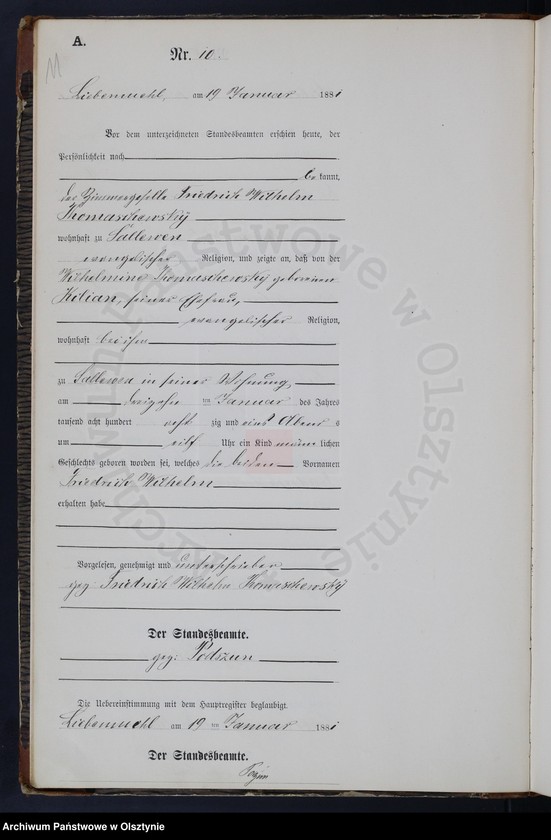 A.
11
Nr. 10
Liebemuehl, am 19 Januar 1881
Vor dem unterzeichneten Standesbeamten erschien heute, der
Persönlichkeit nach
bekannt,
der Zimmergeselle Friedrich Wilhelm
Thomaschewsky
wohnhaft zu Sallewen
evangelischer Religion, und zeigte an, daß von der
Wilhelmine Thomaschewsky geborenen
Kilian, seiner Ehefrau,
evangelischer Religion,
wohnhaft bei ihm
zu Sallewen in seiner Wohnung,
am dreizehn ten Januar des Jahres
tausend acht hundert acht zig und eins Abend s
um eilf Uhr ein Kind männ lichen
Geschlechts geboren worden sei, welches die beiden Vornamen
Friedrich Wilhelm
erhalten habe
Vorgelesen, genehmigt und unterschrieben
gez: Friedrich Wilhelm Thomaschewsky
Der Standesbeamte.
gez: Podszun
Die Uebereinstimmung mit dem Hauptregister beglaubigt.
Liebemuehl am 19 ten Januar 1881
Der Standesbeamte.
Archiwum Państwowe w Olsztynie
Archiwum Państwowe w Olsztynie